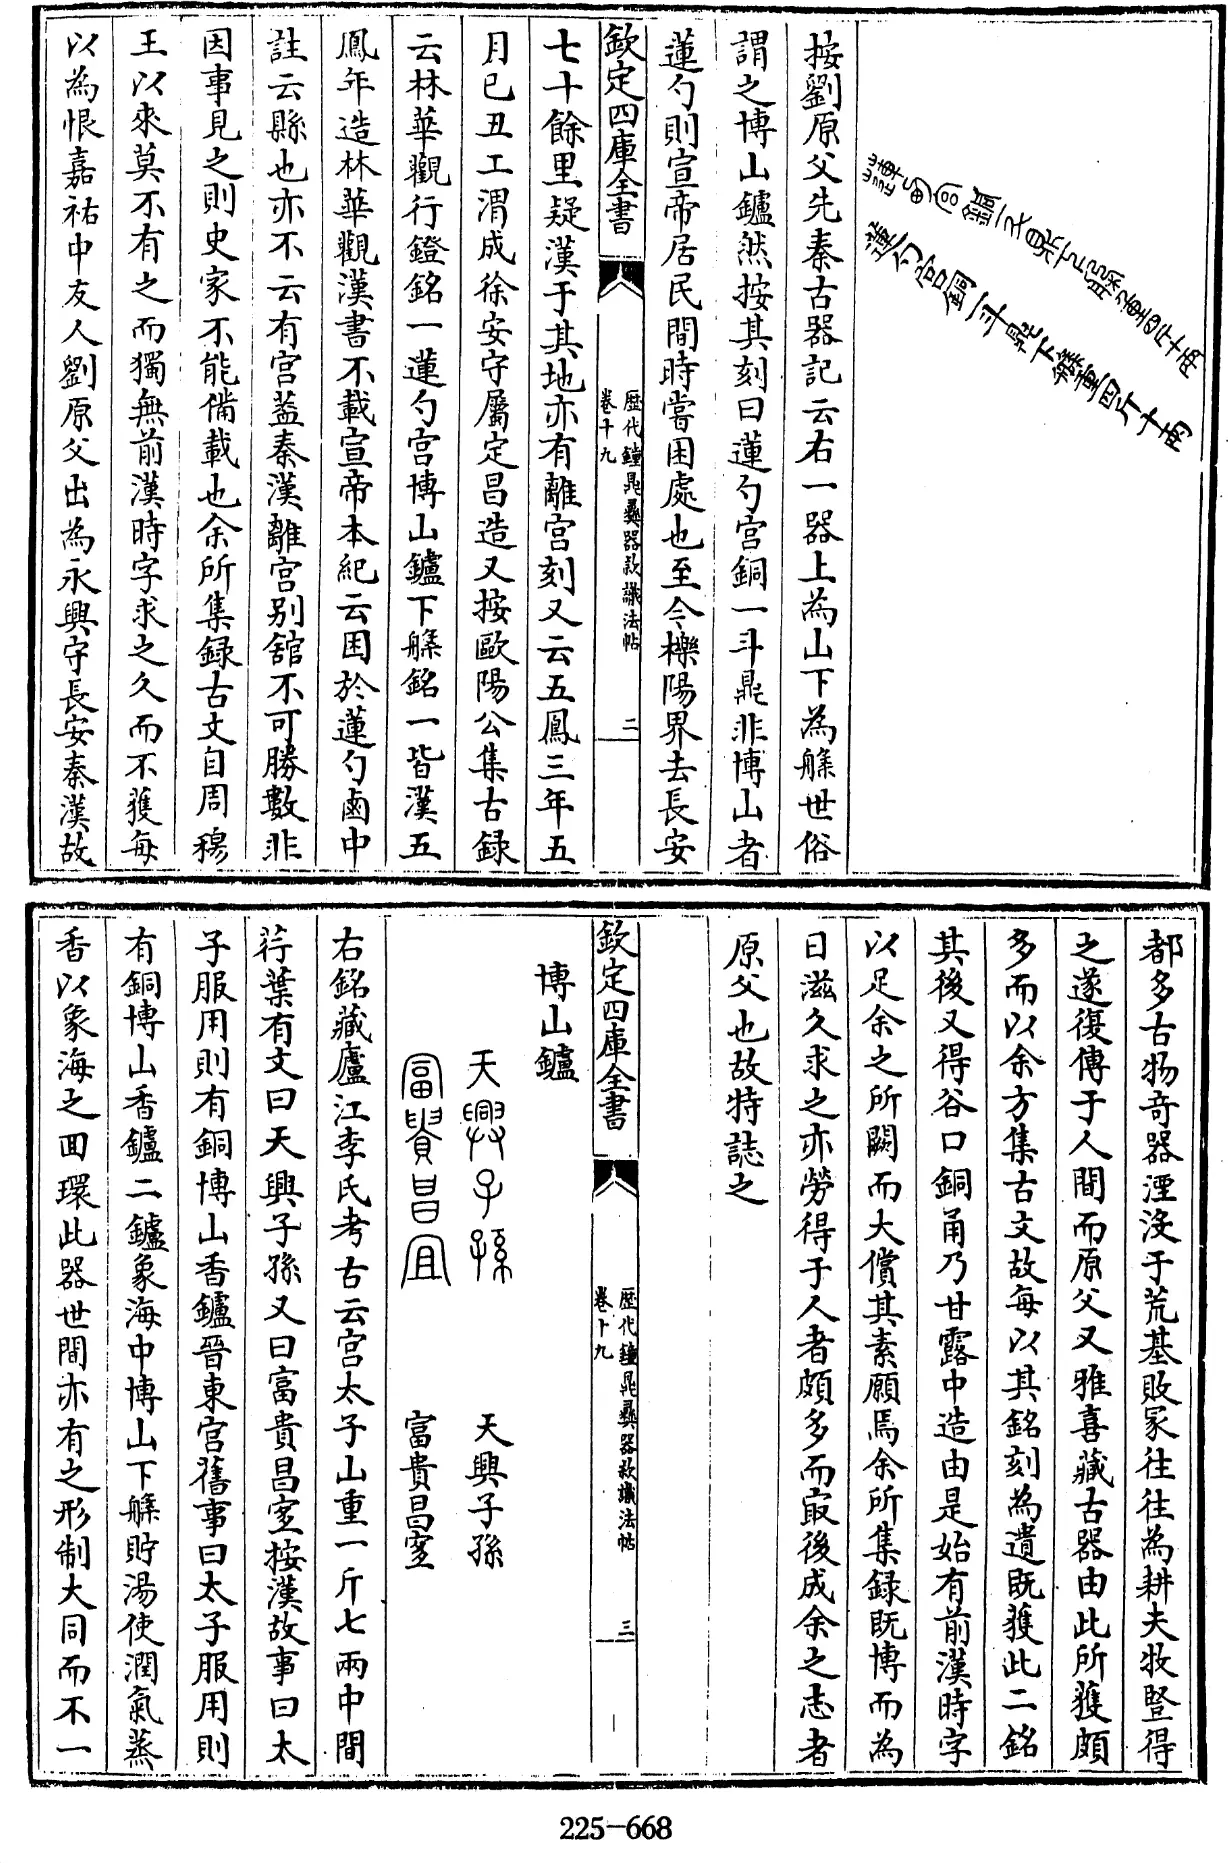 蓮勺宫銅一斗鼎下槃重四斤十兩
蓮勺宫銅一斗鼎下槃重四斤十兩
按劉原父先秦古器記云右一器上為山下為槃世俗
謂之博山鑪然按其刻曰蓮勺宫銅一斗鼎非博山者
蓮勺則宣帝居民間時嘗困處也至今櫟陽界去長安
欽定四庫全書
歷代鐘鼎彝器款識法帖
卷十九
二
七十餘里疑漢于其地亦有離宫刻又云五鳳三年五
月已丑工渭成徐安守屬定昌造又按歐陽公集古録
云林華觀行鐙銘一蓮勺宫博山鑪下槃銘一皆漢五
鳳年造林華觀漢書不載宣帝本紀云困於蓮勺鹵中
註云縣也亦不云有宫葢秦漢離宫别舘不可勝數非
因事見之則史家不能備載也余所集録古文自周穆
王以來莫不有之而獨無前漢時字求之久而不獲每
以為恨嘉祐中友人劉原父出為永興守長安秦漢故
都多古物奇器湮没于荒基敗冢往往為耕夫牧豎得
之遂復傳于人間而原父又雅喜藏古器由此所獲頗
多而以余方集古文故每以其銘刻為遺既獲此二銘
其後又得谷口銅甬乃甘露中造由是始有前漢時字
以足余之所闕而大償其素願焉余所集録既博而為
日滋久求之亦勞得于人者頗多而最後成余之志者
原父也故特誌之
欽定四庫全書
歷代鐘鼎彝器款識法帖
卷十九
三
博山鑪
天興子孫
天興子孫
富貴昌宜
富貴昌宜
右銘藏廬江李氏考古云宫太子山重一斤七兩中間
荇葉有文曰天興子孫又曰富貴昌宜按漢故事曰太
子服用則有銅博山香鑪晉東宫舊事曰太子服用則
有銅博山香鑪二鑪象海中博山下槃貯湯使潤氣蒸
香以象海之回環此器世間亦有之形制大同而不一
225-668